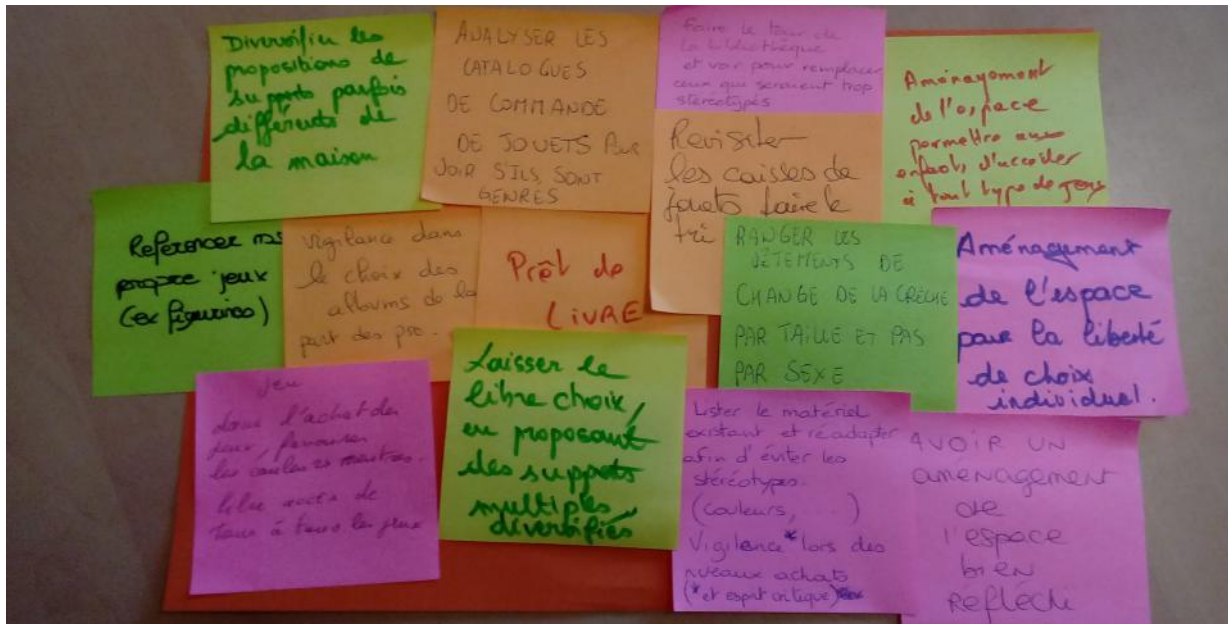 Diversifier les
propositions de
supports parfois
différents de
la maison
ANALYSER LES
CATALOGUES
DE COMMANDE
DE JOUETS POUR
VOIR S'ILS SONT
GENRES
Faire le tour de
la bibliothèque
et voir pour remplacer
ceux qui seraient trop
stéréotypés
Revisiter
les caisses de
jouets faire le
tri
Aménagement
de l'espace
permettre aux
enfants d'accéder
à tout type de jeux
Referencer nos
propre jeux
(ex figurines)
Vigilance dans
le choix des
albums de la
part des pro.
Prêt de
LIVRE
RANGER LES
VÊTEMENTS DE
CHANGE DE LA CRÈCHE
PAR TAILLE ET PAS
PAR SEXE
Aménagement
de l'espace
pour la liberté
de choix
individuel.
jeu
dans l'achat des
jeux, favoriser
les couleurs neutres.
libre accès de
tous à tous les jeux
Laisser le
libre choix,
en proposant
des supports
multiples,
diversifiés
Lister le matériel
existant et réadapter
afin d'éviter les
stéréotypes.
(couleurs, ...)
Vigilance* lors des
nveaux achats
(*et esprit critique)
AVOIR UN
aménagement
de
l'espace
bien
Réfléchi